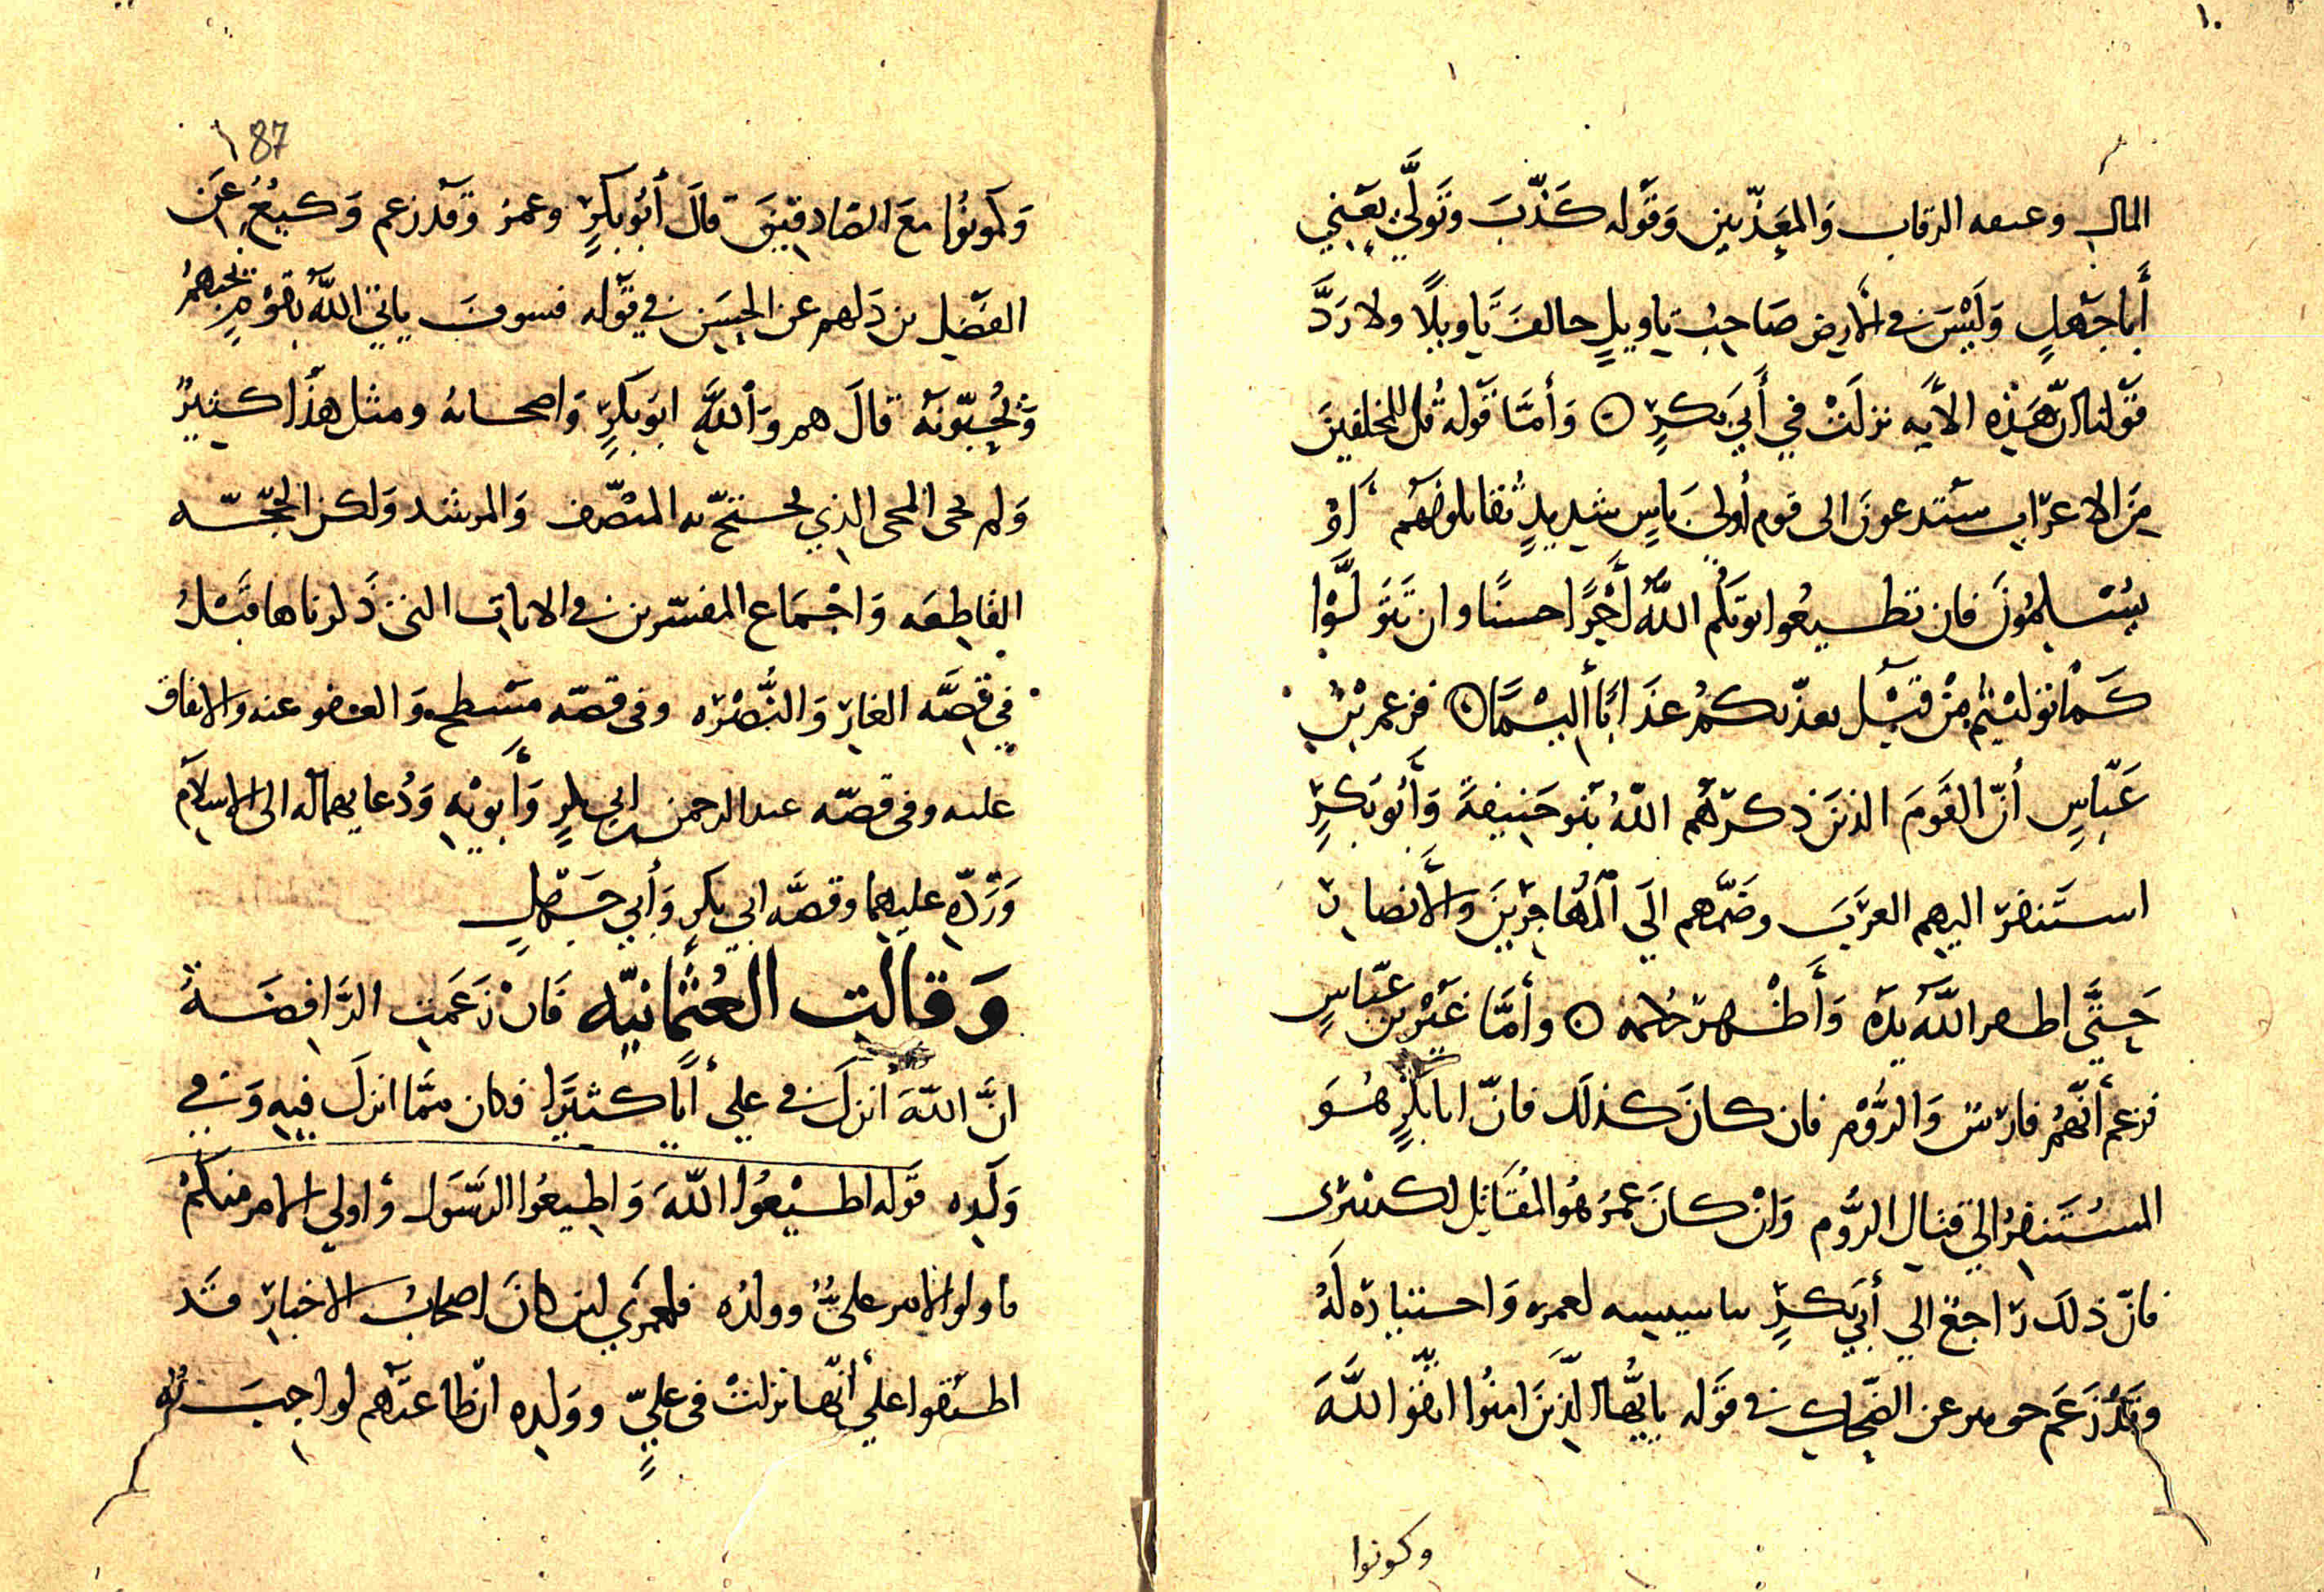 ١٠
المال وعتقه الرقاب وَالمعَذّبين وَقَوله كَذّبَ وتَولَّى يَعني
أَبا جَهلٍ وَلَيْسَ في الأرض صَاحبُ تاويلٍ خالفَ تَاويلًا ولا رَدَّ
قَولنا انّ هَذِه الأَيه نزلَتْ في أَبي بَكرٍ ۞ وَأمَّا قَوله قُل للمخلفينَ
مِنَ الاعرَاب سَتدعونَ الى قوم أُولى بَاسٍ شديدٍ تُقاتلونَهُم أَوْ
يُسْلِمُونَ فان تطيعُوا يوتكم اللَّهُ أَجْرًا حسنًا وان تَتَولَّوْا
كَمَا تولَيْتم مِنْ قَبْل يعذّبكمُ عذَابًا أليمًا ۞ فزعم بْنُ
عَبّاسٍ أنّ القَومَ الذينَ ذكرَهُم اللّهُ بَنو حَنيفةَ وَأَبُو بَكرٍ
استَنفر اليهم العَرَبَ وضَمَّهم الَى المُهَاجِرينَ وَالأَنصار
حَتَّى اظهر اللَّهُ يدَه وَأَظْهر حُكمه ۞ وأمَّا غَيْر بن عَبّاسٍ
فزعم أَنَّهُم فارس وَالرُّوْم فان كانَ كذلك فانّ ابا بكرٍ هُوَ
المسُتَنفِرُ الى قتال الرُّوم وَانْ كانَ عمَرُ هُو المُقَاتِل لكسْرى
فانّ ذلك رَاجعٌ الي أَبي بَكرٍ بتاسيسه لعمره وَاختياره لَهُ
وَقَدْ زَعَم جويبر عن الضّحاك في قَوله يا أَيُّها الّذينَ امنُوا اتّقوا اللَّهَ
وكونوا
١ 87
وَكونُوا معَ الصّادقِينَ قالَ أَبُو بكرٍ وعمرُ وَقَد زعم وَكيعُ عَن
الفَضْل بن دَلهم عن الحسَن في قَوله فسوفَ ياتي اللَّهُ بقَوْمٍ يحبهمُ
وَيُحبّونَه قالَ هم وَاللَّهِ ابو بَكرٍ وَاصحابهُ ومثل هذَا كثيرٌ
وَلم يجئ المجئ الذي يحتجّ به المنْصف وَالمرشد وَلكن الحجّه
القَاطِعَه وَاجْمَاع المفسّرين في الايات التي ذَكرناها قَبْلُ
في قصَّه الغار وَالنُّصْرَه وفى قصّه مِسْطح وَالعفو عنه والانفاق
عليه وفى قصّه عبد الرحمن بن أبي بكرٍ وَأَبويْه وَدُعايهما له الى الاسلام
وَرَدّه عليهما وقصَّه ابي بكرٍ وَأبي جَهلٍ
وَقالت العُثْمانيّه فَانْ زَعَمت الرَّافِضَةُ
انَّ اللّهَ انزلَ في علي أَيًا كثيرًا فكان ممَّا انزلَ فيهِ وَفي
وَلَدِه قَوله اطيْعُوا اللّهَ وَاطيعُوا الرّسَول وَاولي الامر منكُمْ
فاولوا الامر عليٌّ وولدُه فلعمري لين كانَ اصحابُ الاخبار قَد
اطبَقوا على أنّها نزلتْ فى عليٍّ ووَلده انّ طاعتَهم لواجبَه